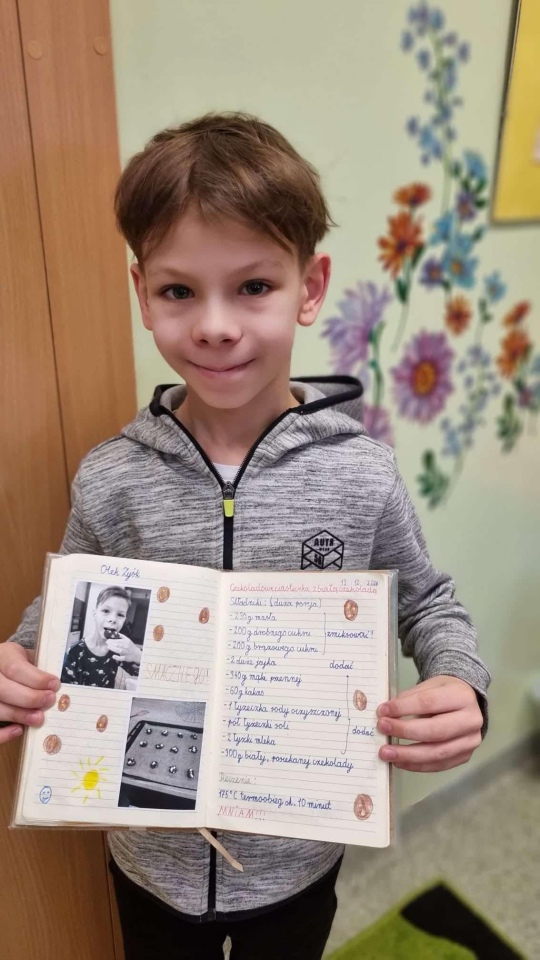 Olek Zyśk
SMACZNEGO!
12.12.
Czekoladowe ciasteczka z białą czekoladą
Składniki: (duża porcja)
- 220g masła
- 200g drobnego cukru
- 200g brązowego cukru
zmiksować!
- 2 duże jajka
dodać
- 340g mąki pszennej
- 60g kakao
- 1 łyżeczka sody oczyszczonej
- pół łyżeczki soli
dodać
- 2 łyżki mleka
- 300g białej, posiekanej czekolady
Pieczenie:
175°C termoobieg ok. 10 minut
MNIAM!!!
AUTH